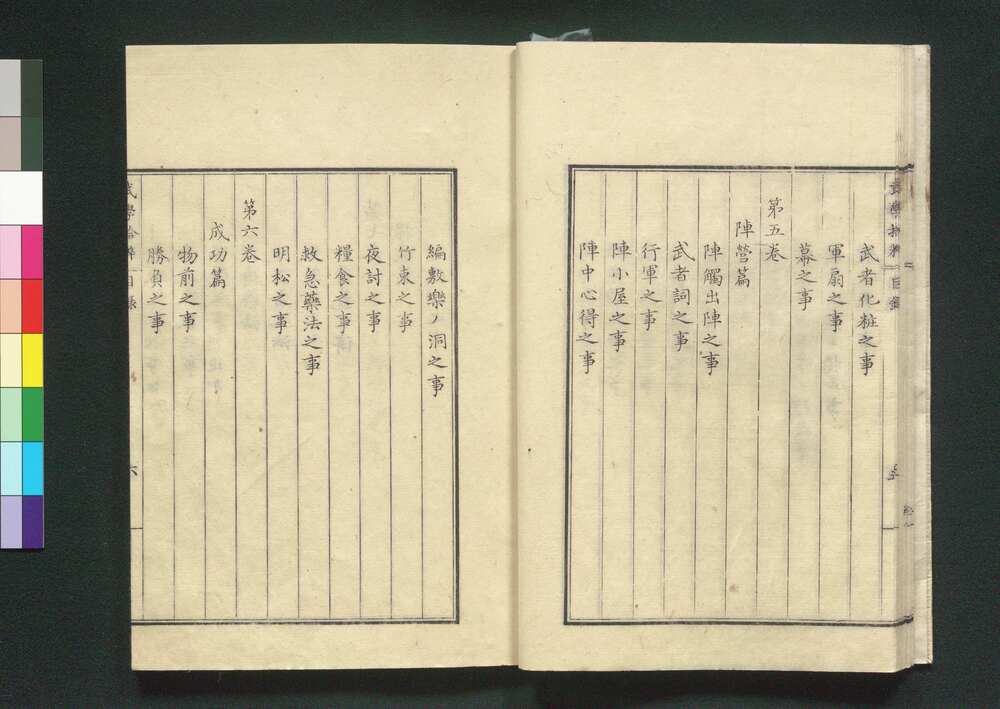 武者化粧之事
軍扇之事
幕之事
第五巻
陣營篇
陣觸出陣之事
武者詞之事
行軍之事
陣小屋之事
陣中心得之事
編敷樂ノ洞之事
竹束之事
夜討之事
糧食之事
救急藥法之事
明松之事
第六巻
成功篇
物前之事
勝負之事
目錄
六